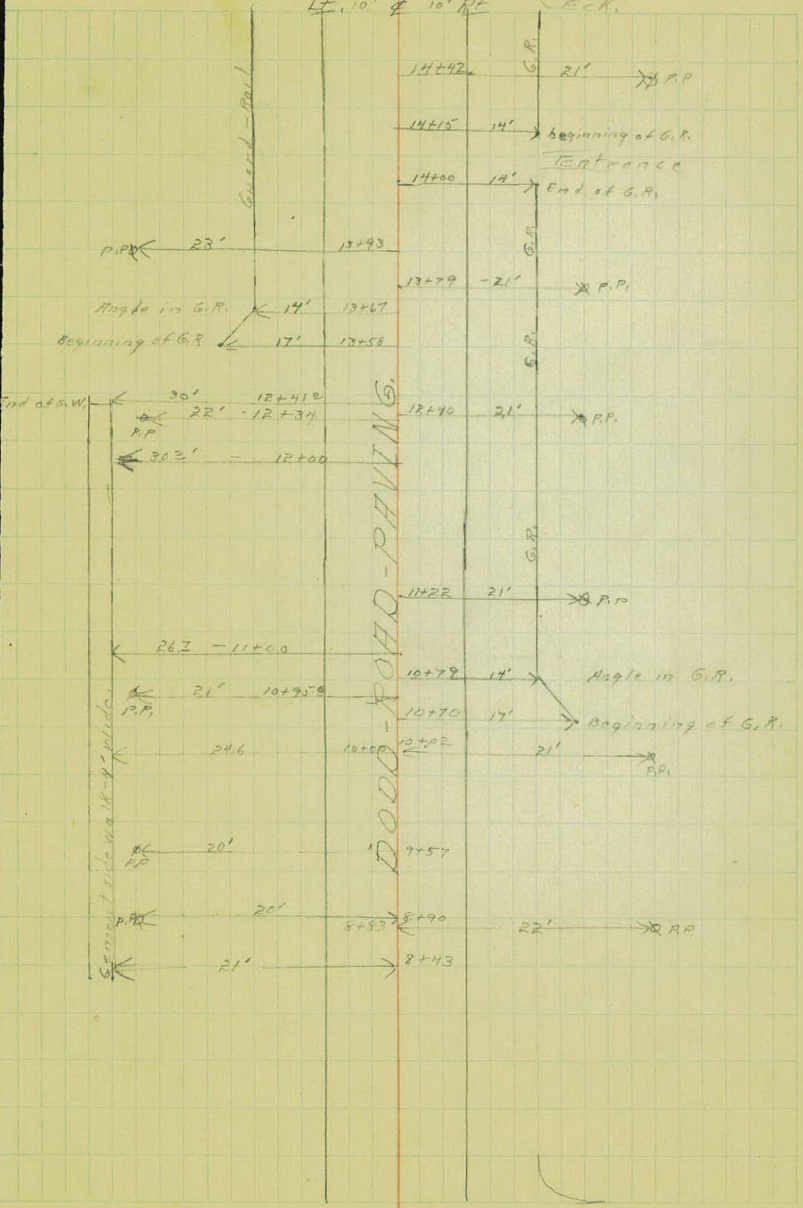 Lt. 10' ℄ 10' Rt
14+42 G.R. 21' P.P
Guard-Rail
14+15 14' beginning of G.R.
Entrence
14+00 14' End of G.R.
P.P. 23' 13+93 G.R.
13+79 -21' P.P.
Angle in G.R. 14' 13+67
Beginning of G.R 17' 13+58 G.R.
End of S.W. 30' 12+412
22' - 12+34 12+40 21' P.P.
P.P
303' - 12+00
DODD-ROAD-PAVING.
G.R.
11+22 21' P.P
26.7 - 11+00
10+79 14' Angle in G.R.
21' 10+959
P.P.
10+70 17' Beginning of G.R.
24.6 10+00 10+02 21'
P.P.
Cement sidewalk-4' Wide.
20' 9+57
P.P
P.P. 20' 8+90
8+83 22' P.P.
21' 8+43